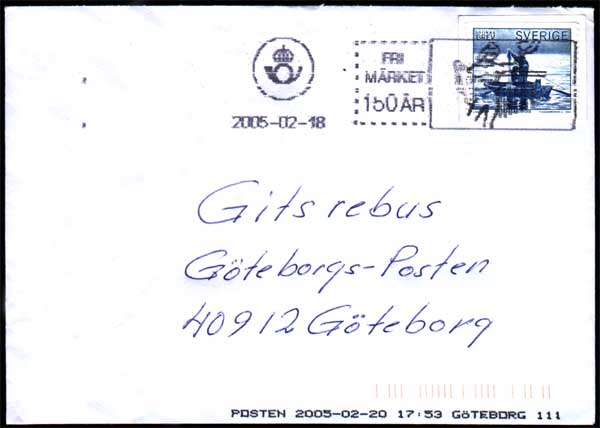 BREV SVERIGE
FRI
MÄRKET
150 ÅR
2005-02-18
Gits rebus
Göteborgs-Posten
40912 Göteborg
POSTEN 2005-02-20 17:53 GÖTEBORG 111